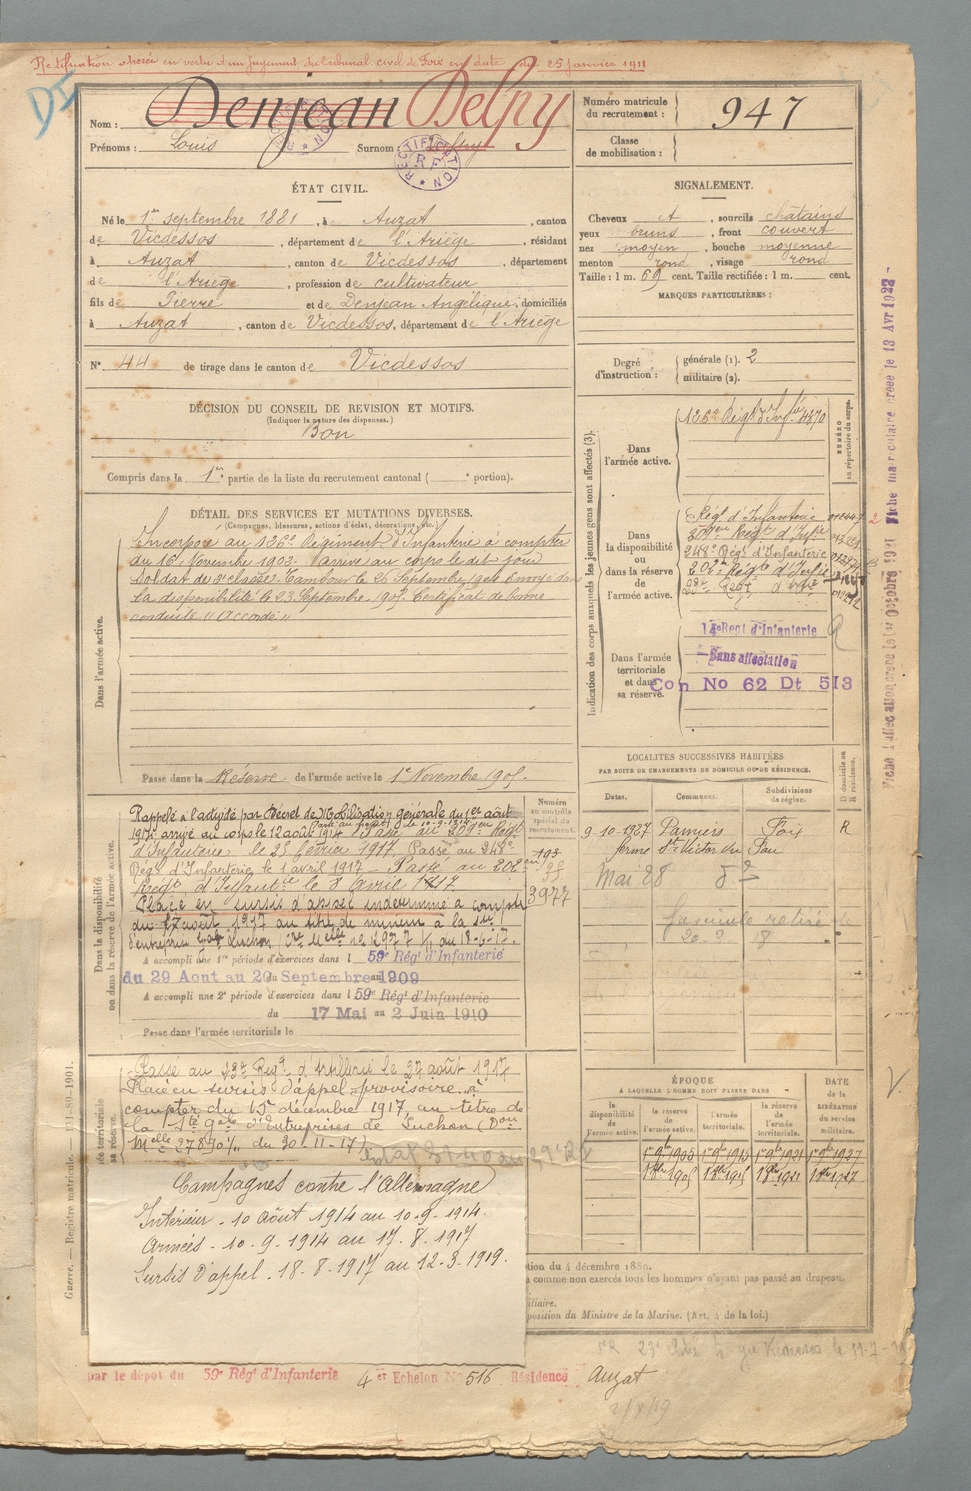 Rectification opérée en vertu d'un jugement du tribunal civil de Foix en date du 25 janvier 1911
Nom : Denjean Delpy
Prénoms : Louis Surnom : Delpy
RECTIFICATION R F
Numéro matricule du recrutement : 947
Classe de mobilisation :
ÉTAT CIVIL.
Né le 1er septembre 1881, à Auzat, canton
de Vicdessos, département de l'Ariège, résidant
à Auzat, canton de Vicdessos, département
de l'Ariège, profession de cultivateur
fils de Pierre et de Denjean Angélique, domiciliés
à Auzat, canton de Vicdessos, département de l'Ariège
N° 44 de tirage dans le canton de Vicdessos
SIGNALEMENT.
Cheveux et, sourcils châtains
yeux bruns, front couvert
nez moyen, bouche moyenne
menton rond, visage rond
Taille : 1 m. 69 cent. Taille rectifiée : 1 m. cent.
MARQUES PARTICULIÈRES :
Degré d'instruction : générale (1). 2
militaire (2).
DÉCISION DU CONSEIL DE REVISION ET MOTIFS.
(Indiquer la nature des dispenses.)
Bon
Compris dans la 1re partie de la liste du recrutement cantonal ( portion).
DÉTAIL DES SERVICES ET MUTATIONS DIVERSES.
(Campagnes, blessures, actions d'éclat, décorations, etc.)
Dans l'armée active.
Incorporé au 126e Régiment d'Infanterie à compter
du 16 Novembre 1902. Arrivé au corps le dit jour
Soldat de 2e classe. Tambour le 26 Septembre 1904 Envoyé dans
la disponibilité le 23 Septembre 1905 Certificat de bonne
conduite "Accordé"
Passé dans la Réserve de l'armée active le 1er Novembre 1905.
Indication des corps auxquels les jeunes gens sont affectés (3).
NUMÉRO au répertoire du corps.
Dans l'armée active.
126e Régt d'Infie 4870
Dans la disponibilité ou dans la réserve de l'armée active.
Régt d'Infanterie
209e Régt d'Infie
248e Régt d'Infanterie
202e Régt d'Infie
23e Régt d'Artie
Dans l'armée territoriale et dans sa réserve.
14e Regt d'Infanterie
Sans affectation
Con No 62 Dt 513
LOCALITÉS SUCCESSIVES HABITÉES
PAR SUITE DE CHANGEMENTS DE DOMICILE OU DE RÉSIDENCE.
Dates. Communes. Subdivisions de région. D domicile ou R résidence.
9-10-1927 Pamiers Foix R
ferme St Victor
Mai 28 d°
fascicule retiré le
Dans la disponibilité ou dans la réserve de l'armée active.
Numéro au contrôle spécial du recrutement.
Rappelé à l'activité par Décret de Mobilisation générale du 1er août
1914 arrivé au corps le 12 août 1914 Passé au 209eme Régt
d'Infanterie le 25 février 1917 Passé au 248e
Régt d'Infanterie le 1 avril 1917 – Passé au 202eme
Régt d'Infantie le 8 avril 1917
193
3977
Placé en sursis d'appel indéterminé à compter
du 17 août 1917 au titre de mineur à la Sté
A accompli une 1re période d'exercices dans l 59e Régt d'Infanterie
du 29 Aout au 20 Septembre 1909
A accompli une 2e période d'exercices dans l 59e Régt d'Infanterie
du 17 Mai au 2 Juin 1910
Passé dans l'armée territoriale le
Passé au 23e Régt d'Artillerie le 27 août 1917
Placé en sursis d'appel provisoire à
compter du 15 décembre 1917 au titre de
la Sté gale d'Entreprises de Luchon (Don
Melle 27890 du 30-11-17)
Campagnes contre l'Allemagne
Intérieur - 10 août 1914 au 10.9.1914.
Armées - 10.9.1914 au 17.8.1917
Sursis d'appel - 18.8.1917 au 12.3.1919.
ÉPOQUE
À LAQUELLE L'HOMME DOIT PASSER DANS
DATE de la LIBÉRATION du service militaire.
la disponibilité de l'armée active. la réserve de l'armée active. l'armée territoriale. la réserve de l'armée territoriale.
1er 9bre 1905 1er 9bre 1915 1er 9bre 1921 1er 9bre 1927
tion du 4 décembre 1889.
a comme non exercés tous les hommes n'ayant pas passé au drapeau.
iliaire.
position du Ministre de la Marine. (Art. 4 de la loi.)
par le dépot du 59e Régt d'Infanterie 4 er Echelon N° 516 Résidence Auzat
Guerre. — Registre matricule. — 131-89-1901.